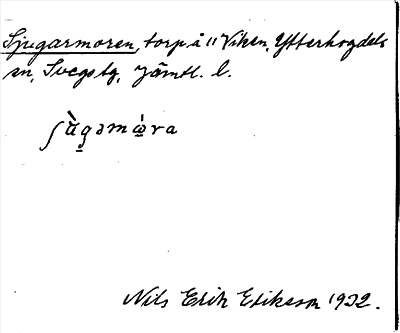 Sjugarmoren, torp å "Viken, Ytterhogdals
sn, Svegs tg, Jämtl. l.
ʃù̖gəmώ̖ra
Nils Erik Eriksson 1932.